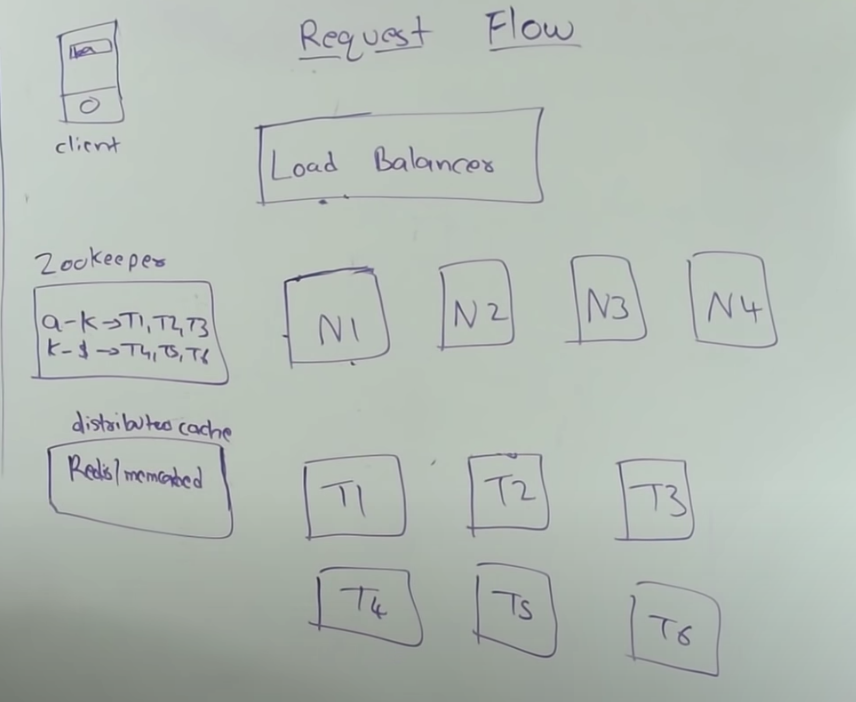 Request Flow
client
Load Balancer
Zookeeper
a-k→T1, T2, T3
k-$→T4, T5, T6
N1 N2 N3 N4
distributed cache
Redis/memcached
T1 T2 T3
T4 T5 T6